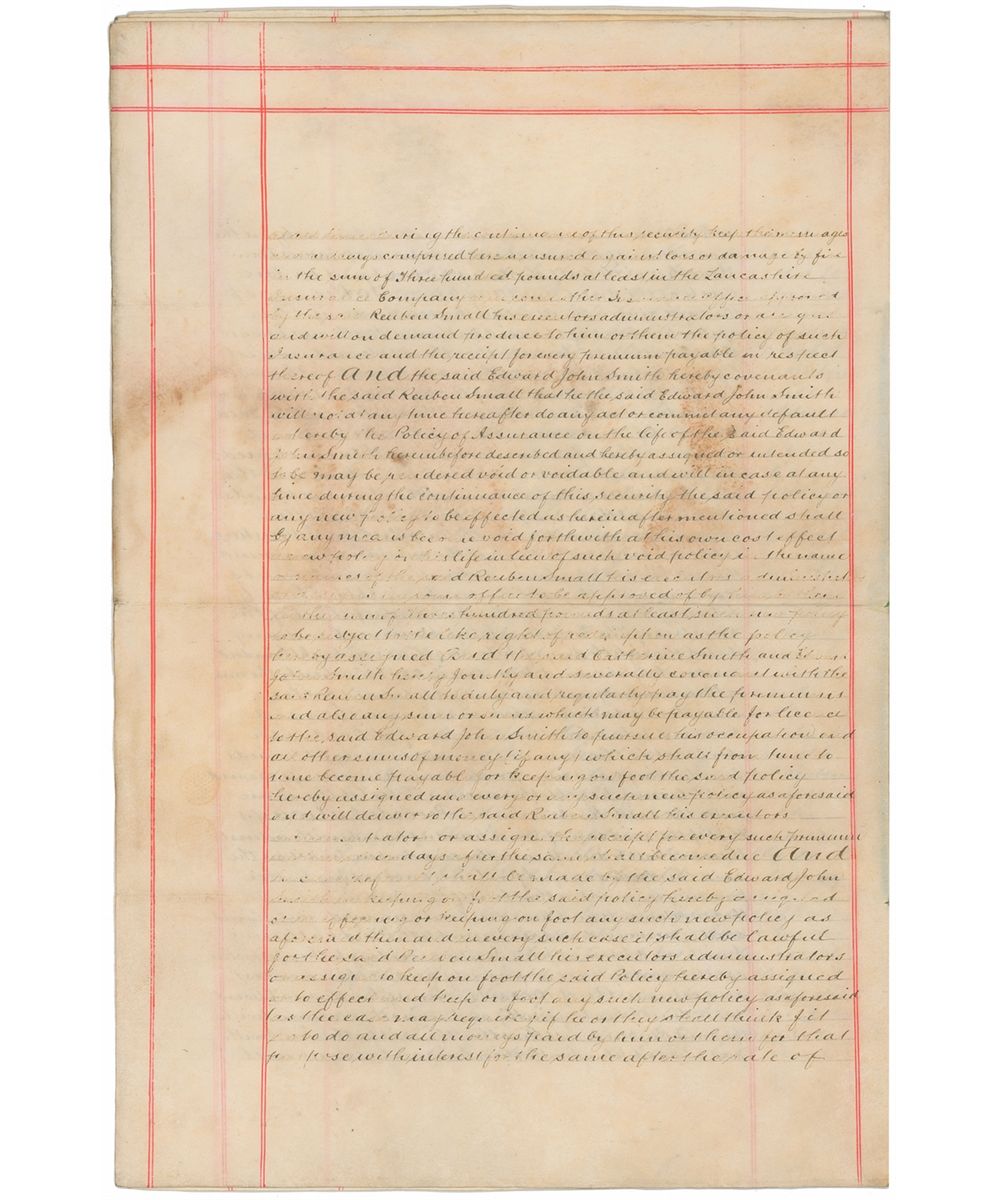 during the continuance of this security keep the messuages
comprised herein insured against loss or damage by fire
in the sum of Three hundred pounds at least in the Lancashire
Insurance Company or some other Insurance Office approved
by the said Reuben Small his executors administrators or assigns
and will on demand produce to him or them the policy of such
Insurance and the receipt for every premium payable in respect
thereof And the said Edward John Smith hereby covenants
with the said Reuben Small that he the said Edward John Smith
will not at any time hereafter do any act or commit any default
whereby the Policy of Assurance on the life of the said Edward
John Smith hereinbefore described and hereby assigned or intended so
to be may be rendered void or voidable and will in case at any
time during the continuance of this security the said policy or
any new policy to be effected as hereinafter mentioned shall
by any means become void forthwith at his own cost effect
a new policy on his life in lieu of such void policy in the name
or names of the said Reuben Small his executors administrators
office to be approved of by
hundred pounds at least such new policy
to be subject to the like right of redemption as the policy
hereby assigned And the said Catherine Smith and Edward
John Smith hereby jointly and severally covenant with the
said Reuben Small to duly and regularly pay the premiums
and also any sum or sums which may be payable for licence
to the said Edward John Smith to pursue his occupation and
all other sums of money (if any) which shall from time to
time become payable for keeping on foot the said policy
hereby assigned and every or any such new policy as aforesaid
and will deliver to the said Reuben Small his executors
administrators or assigns the receipt for every such premium
days after the same shall become due And
shall be made by the said Edward John
keeping on foot the said policy hereby assigned
or keeping on foot any such new policy as
aforesaid then and in every such case it shall be lawful
for the said Reuben Small his executors administrators
or assigns to keep on foot the said Policy hereby assigned
or to effect and keep on foot any such new policy as aforesaid
(as the case may require) if he or they shall think fit
so to do and all moneys paid by him or them for that
purpose with interest for the same after the rate of